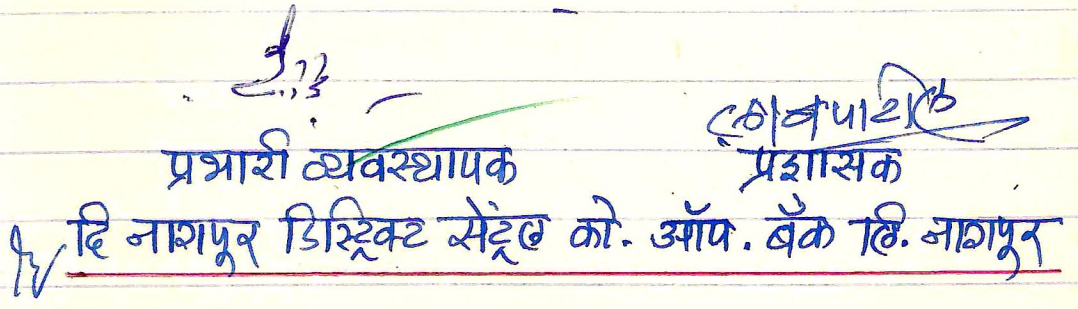 प्रभारी व्यवस्थापक प्रशासक
दि नागपूर डिस्ट्रिक्ट सेंट्रल को. ऑप. बँक लि. नागपूर